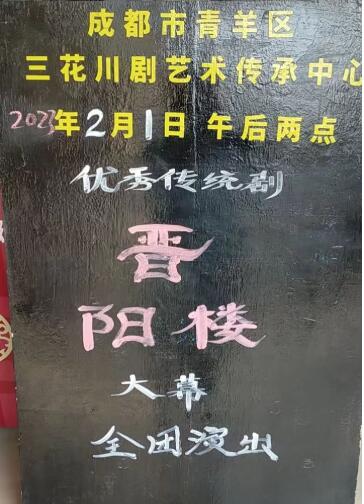 成都市青羊区
三花川剧艺术传承中心
2023年2月1日 午后两点
优秀传统剧
晋
阳楼
大幕
全团演出